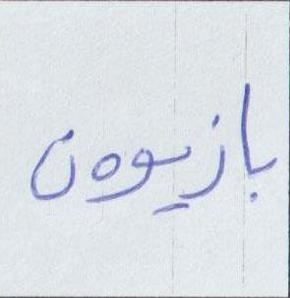 بازیوون